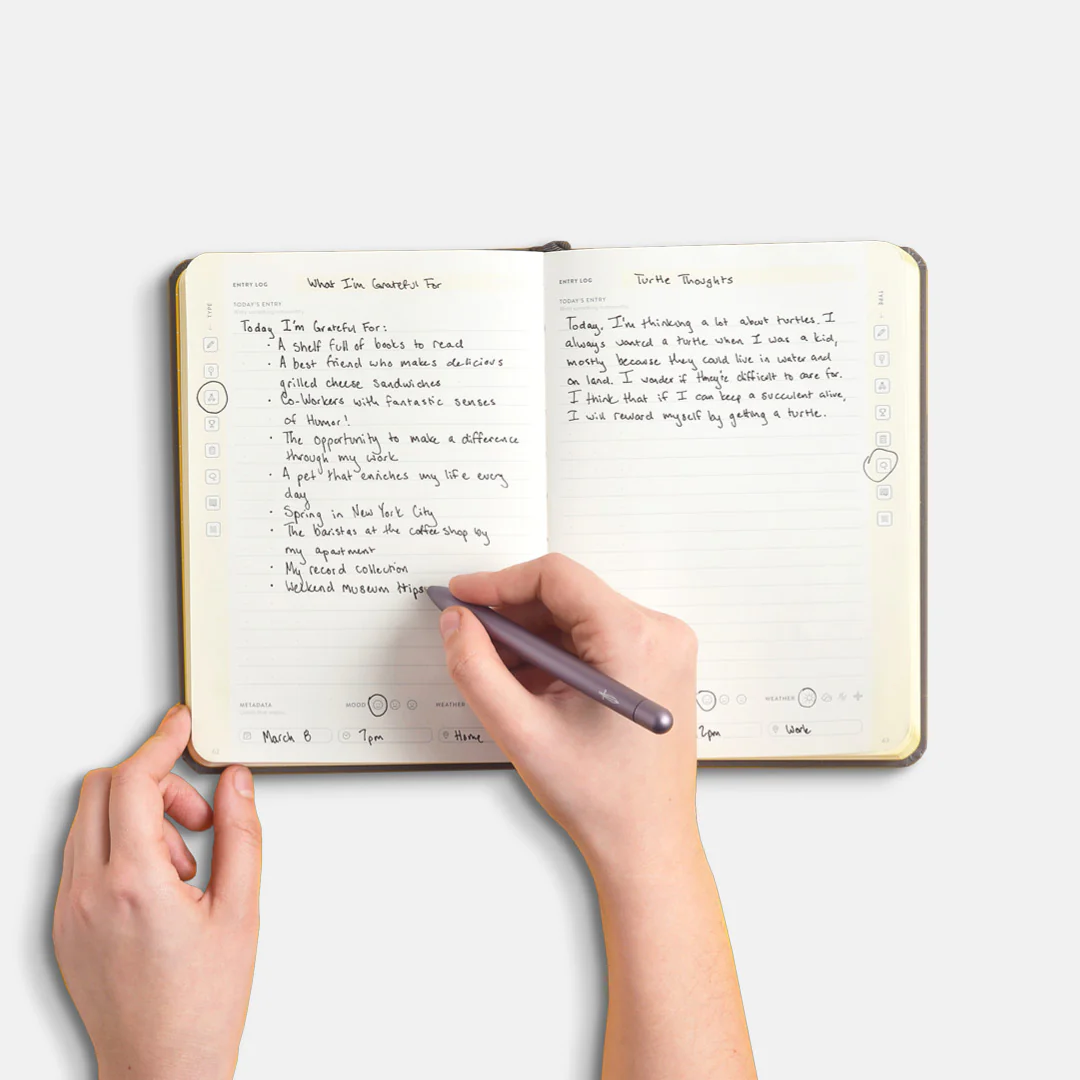 ENTRY LOG
What I'm Grateful For
TYPE
TODAY'S ENTRY
Today I'm Grateful For:
· A shelf full of books to read
· A best friend who makes delicious
grilled cheese sandwiches
· Co-Workers with fantastic senses
of Humor!
· The opportunity to make a difference
through my work
· A pet that enriches my life every
day
· Spring in New York City
· The baristas at the coffee shop by
my apartment
· My record collection
· Weekend museum trips
METADATA
MOOD
WEATHER
March 8
7pm
Home
62
ENTRY LOG
Turtle Thoughts
TYPE
TODAY'S ENTRY
Today, I'm thinking a lot about turtles. I
always wanted a turtle when I was a kid,
mostly because they could live in water and
on land. I wonder if they're difficult to care for.
I think that if I can keep a succulent alive,
I will reward myself by getting a turtle.
WEATHER
2pm
Work
63